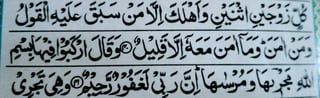 كُلٍّ زَوْجَيْنِ اثْنَيْنِ وَاَهْلَكَ اِلَّا مَنْ سَبَقَ عَلَيْهِ الْقَوْلُ
وَمَنْ اٰمَنَ ؕ وَمَاۤ اٰمَنَ مَعَهٗۤ اِلَّا قَلِيْلٌ ﴿۴۰﴾ وَقَالَ ارْكَبُوْا فِيْهَا بِسْمِ
اللّٰهِ مَجْرٖىهَا وَمُرْسٰىهَا ؕ اِنَّ رَبِّيْ لَغَفُوْرٌ رَّحِيْمٌ ﴿۴۱﴾ وَهِيَ تَجْرِيْ